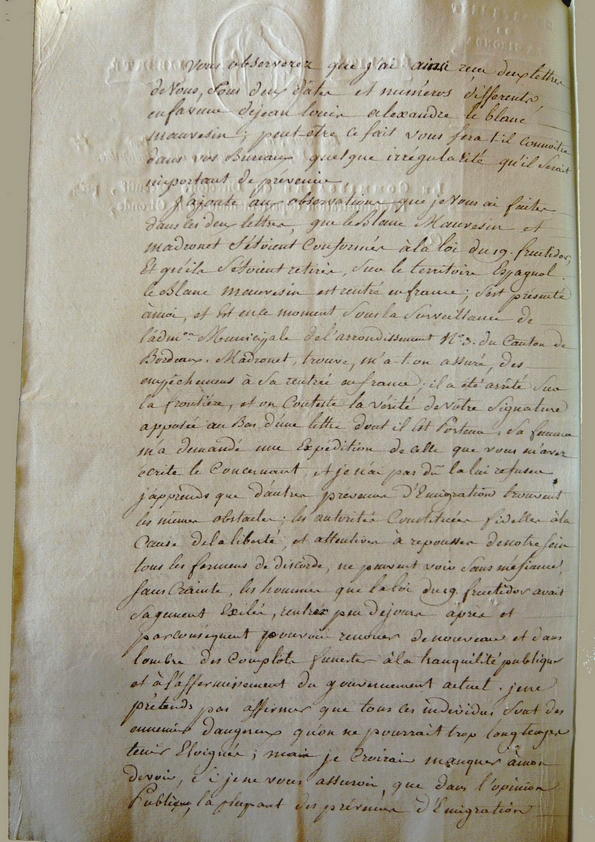 Vous observerez que j'ai ainsi recu deux lettres
de Vous, sous deux dates et numeros differents,
enfaveur dejean louis alexandre le blanc
mauvesin; peut-être ce fait vous fera t-il connoitre
dans vos Bureaux quelque irrégularité qu'il seroit
important de prevenir.
J'ajoute aux observations que je Vous ai faites
dans les deux lettres, que le Blanc Mauvesin et
madronet s'étoient Conformés à la loi du 19. fructidor,
Et qu'ils s'étoient retirés, sur le territoire Espagnol.
le Blanc mauvesin est rentré en france; s'est présenté
àmoi, et est en ce moment sous la surveillance de
l'adm.on Municipale de l'arrondissement N.o 3. du Canton de
Bordeaux. Madronet, trouve, m'a t'on assuré, des
empêchemens à sa rentrée en france; il a été arrêté sur
la frontière, et on Conteste la vérité de votre signature
apposée au Bas d'une lettre dont il est Porteur. sa femme
m'a demandé une Expédition de celle que vous m'avez
écrite le Concernant, et je n'ai pas dû la lui refuser.
j'apprends que d'autres prevenus d'Emigration trouvent
les mêmes obstacles; les autorités Constituées fidelles à la
Cause de la liberté, et attentives a repousser de notre sein
tous les fermens de discorde, ne peuvent voir sans méfiance,
sans Crainte, les hommes que la loi du 19. fructidor avait
sagement Exilés, rentrer peu de jours après et
par conséquent pouvoir renouer de nouveau et dans
l'ombre des Complots funestes à la tranquilité publique
et à l'affermissement du gouvernement actuel. je ne
prétends pas affirmer que tous les individus sont des
ennemis dangereux qu'on ne pourrait trop longtemps
tenir Eloignés; mais je Croirais manquer à mon
devoir, si je ne vous assurois, que dans l'opinion
Publique, la plupart des prévenus d'Emigration